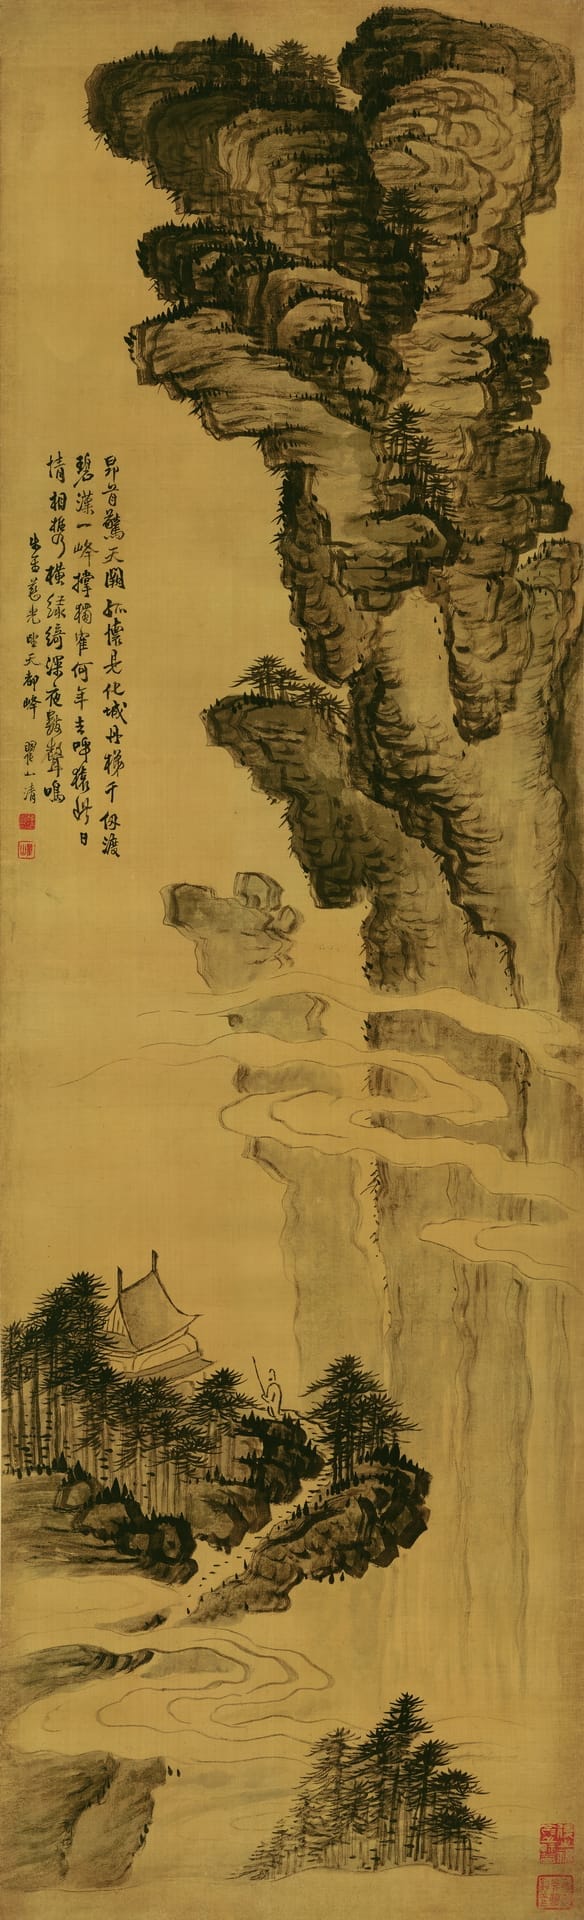 昂首驚天闕孤懷是化城丹梯千仞渡
碧漢一峰撐獨崔何年去呼猿此日
情相攜橫綠綺深夜數聲鳴
慈光望天都峰 瞿山清